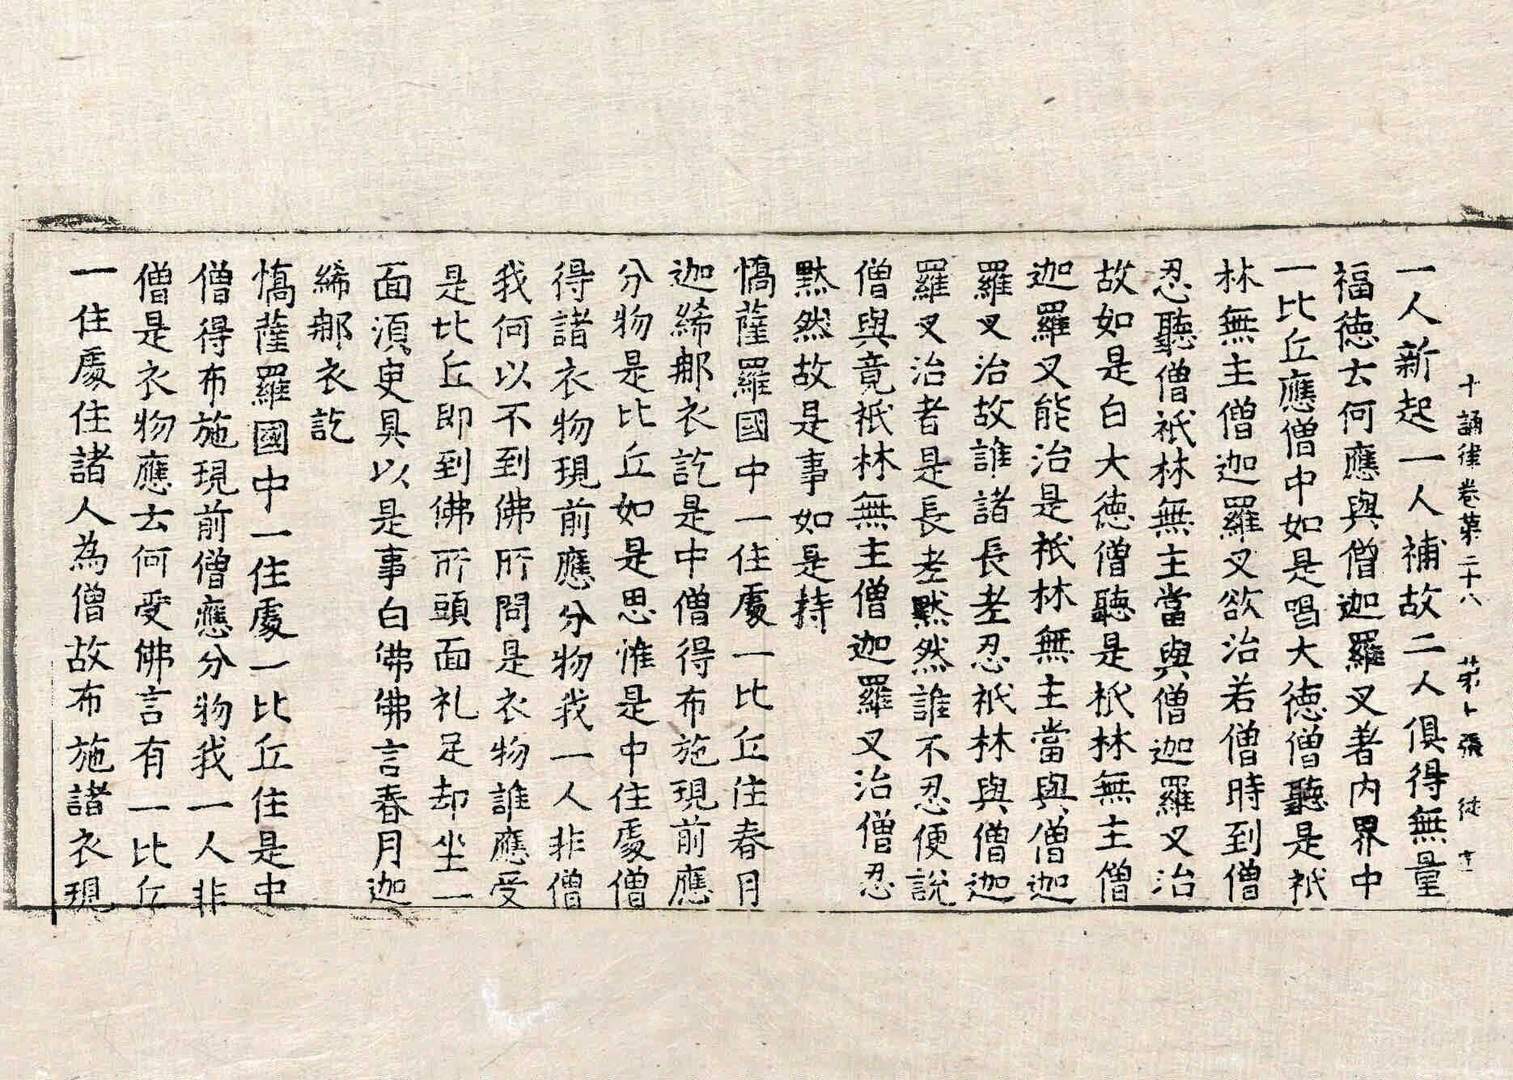 十誦律卷第二十八 第卜張 徒
一人新起一人補故二人俱得無量
福德去何應與僧迦羅叉著内界中
一比丘應僧中如是唱大德僧聽是祇
林無主僧迦羅叉欲治若僧時到僧
忍聽僧祇林無主當與僧迦羅叉治
故如是白大德僧聽是祇林無主僧
迦羅叉能治是祇林無主當與僧迦
羅叉治故誰諸長老忍祇林與僧迦
羅叉治者是長老黙然誰不忍便說
僧與竟祇林無主僧迦羅叉治僧忍
黙然故是事如是持
憍薩羅國中一住處一比丘住春月
迦絺那衣訖是中僧得布施現前應
分物是比丘如是思惟是中住處僧
得諸衣物現前應分物我一人非僧
我何以不到佛所問是衣物誰應受
是比丘即到佛所頭面礼足却坐一
面須臾具以是事白佛佛言春月迦
絺那衣訖
憍薩羅國中一住處一比丘住是中
僧得布施現前僧應分物我一人非
僧是衣物應去何受佛言有一比丘
一住處住諸人為僧故布施諸衣現